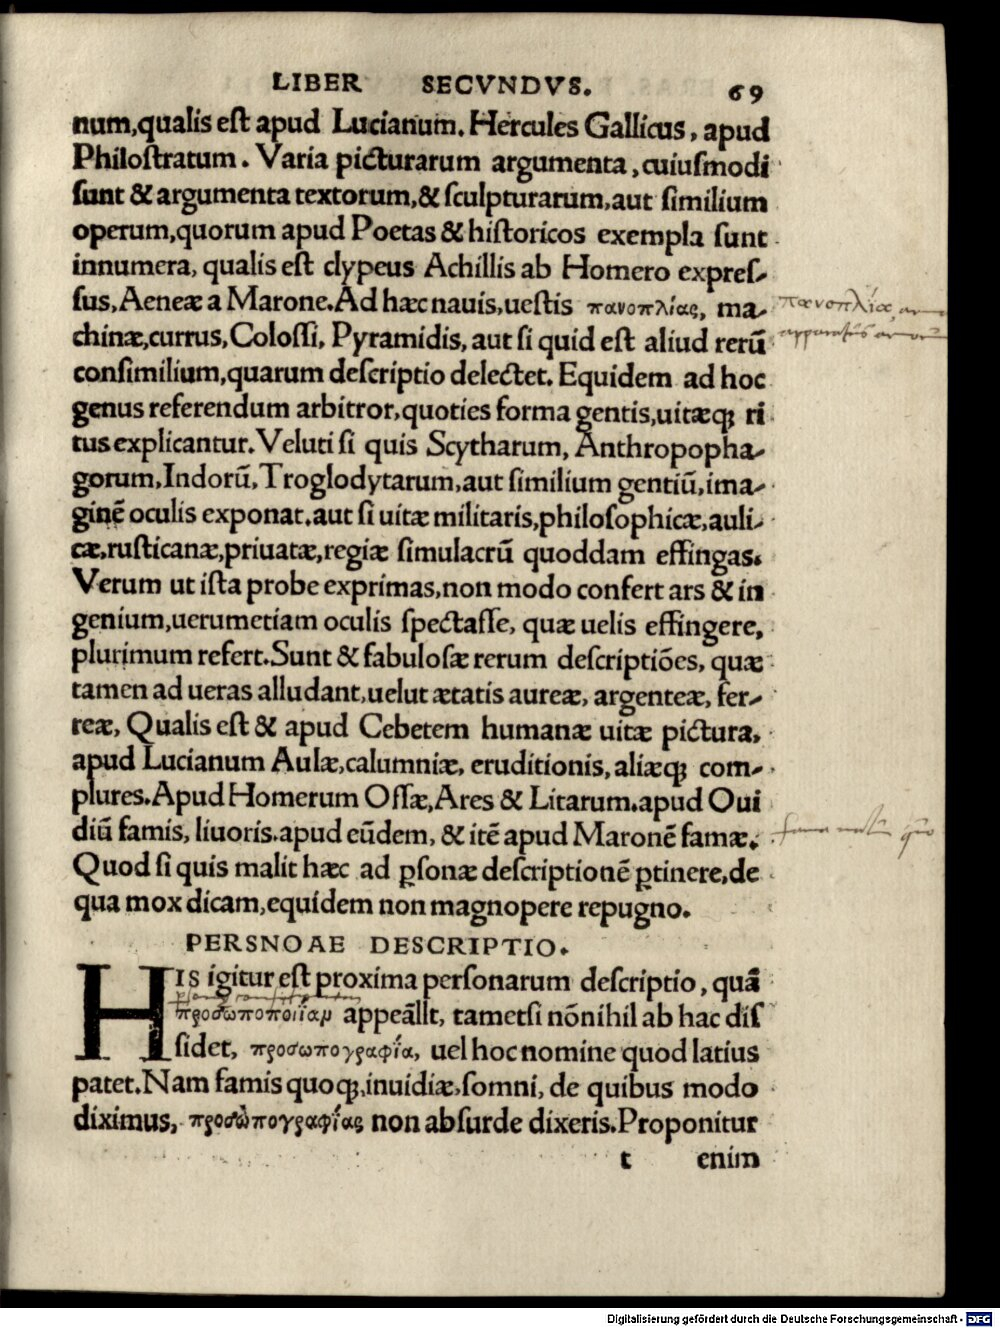 LIBER SECVNDVS. 69
num,qualis eſt apud Lucianum. Hercules Gallicus, apud
Philoſtratum. Varia picturarum argumenta, cuiuſmodi
ſunt & argumenta textorum, & ſculpturarum, aut ſimilium
operum, quorum apud Poetas & hiſtoricos exempla ſunt
innumera, qualis eſt clypeus Achillis ab Homero expreſ-
ſus, Aeneæ a Marone. Ad hæc nauis, ueſtis πανοπλίας, ma-
πανοπλία,
chinæ, currus, Coloſſi, Pyramidis, aut ſi quid eſt aliud rerū
apparatus armorum
conſimilium, quarum deſcriptio delectet. Equidem ad hoc
genus referendum arbitror, quoties forma gentis, uitæqꝫ ri
tus explicantur. Veluti ſi quis Scytharum, Anthropopha-
gorum, Indorū, Troglodytarum, aut ſimilium gentiū, ima-
ginē oculis exponat. aut ſi uitæ militaris, philoſophicæ, auli-
cæ, ruſticanæ, priuatæ, regiæ ſimulacrū quoddam effingas.
Verum ut iſta probe exprimas, non modo confert ars & in
genium, uerumetiam oculis ſpectaſſe, quæ uelis effingere,
plurimum refert. Sunt & fabuloſæ rerum deſcriptiōes, quæ
tamen ad ueras alludant, uelut ætatis aureæ, argenteæ, fer-
reæ, Qualis eſt & apud Cebetem humanæ uitæ pictura,
apud Lucianum Aulæ, calumniæ, eruditionis, aliæqꝫ com-
plures. Apud Homerum Oſſæ, Ares & Litarum. apud Oui
diū famis, liuoris. apud eūdem, & itē apud Maronē famæ.
Quod ſi quis malit hæc ad ꝑſonæ deſcriptionē ꝑtinere, de
qua mox dicam, equidem non magnopere repugno.
PERSNOAE DESCRIPTIO.
HIS igitur eſt proxima perſonarum deſcriptio, quā
προσωποποιΐαμ appeāllt, tametſi nōnihil ab hac diſ
ſidet, προσωπογραφία, uel hoc nomine quod latius
patet. Nam famis quoqꝫ, inuidiæ, ſomni, de quibus modo
diximus, προσωπογραφίας non abſurde dixeris. Proponitur
t enim
Digitalisierung gefördert durch die Deutsche Forschungsgemeinschaft - DFG